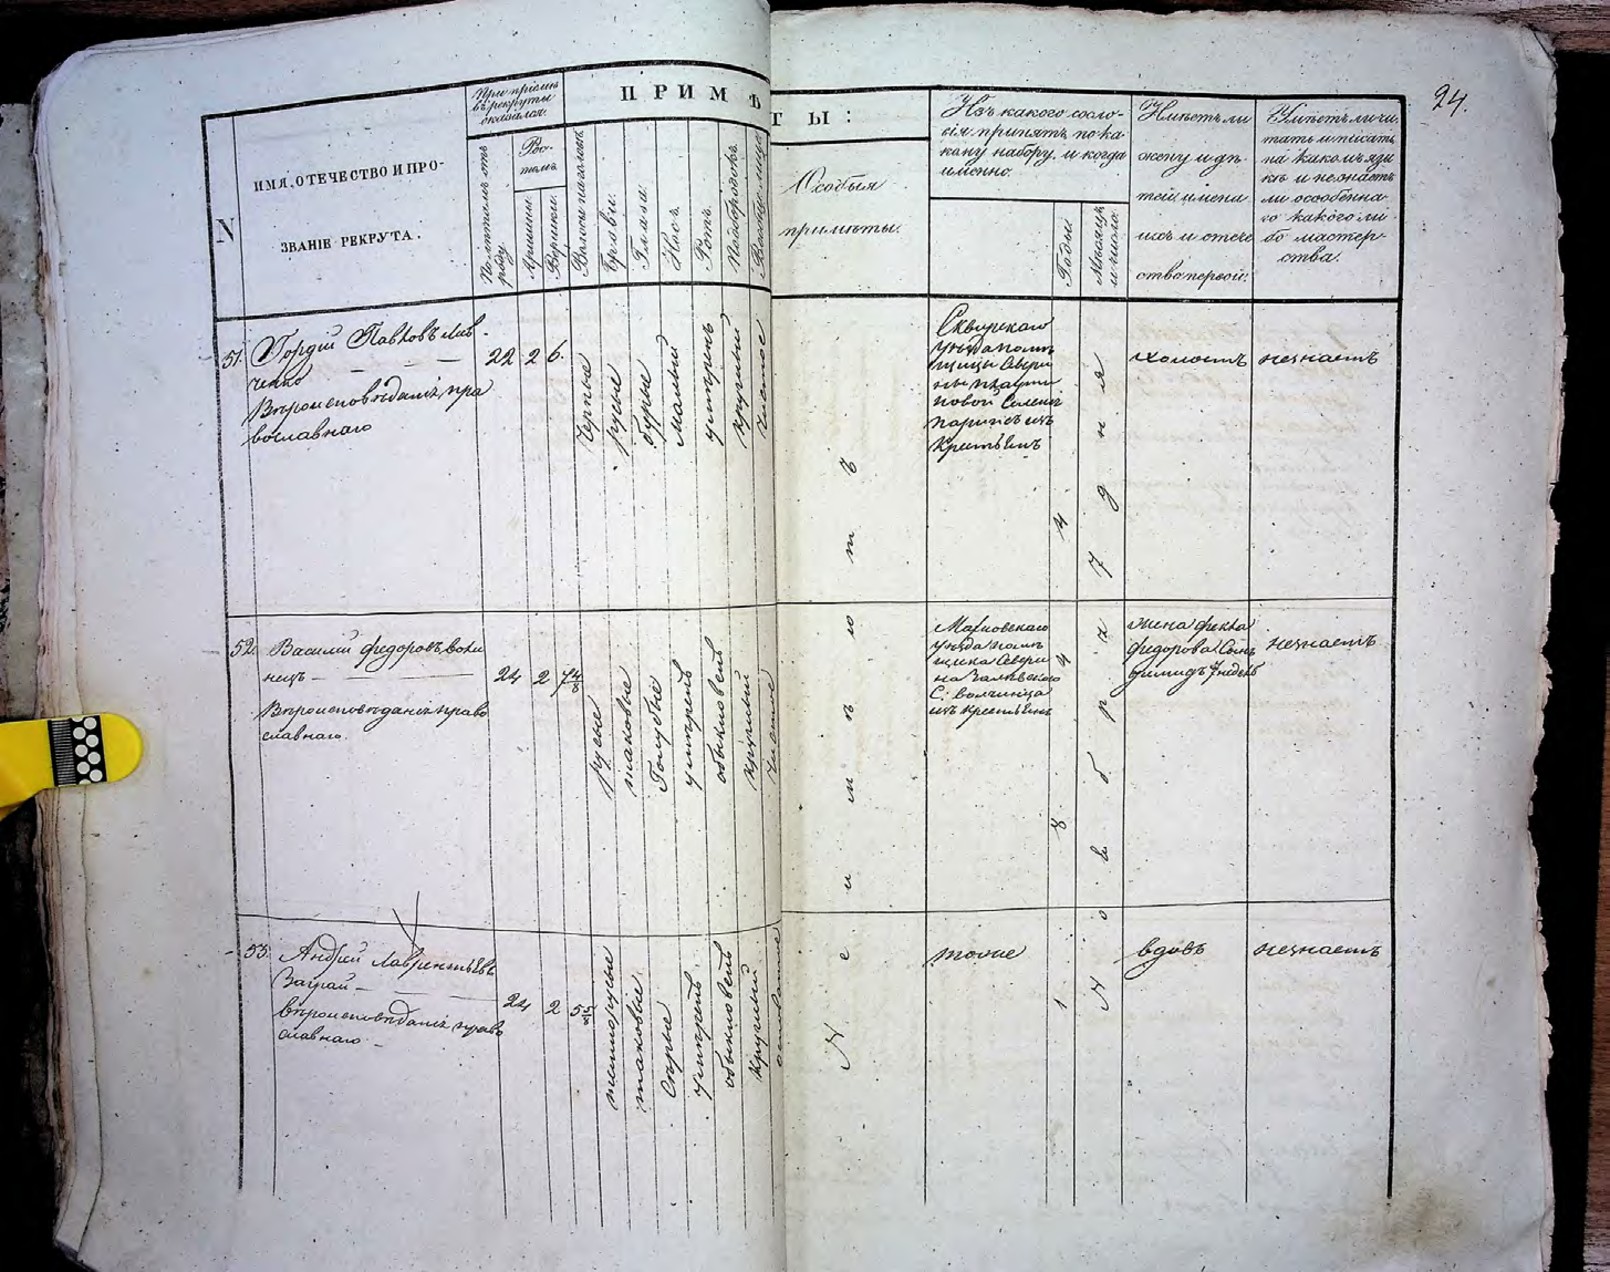 24.
N
ИМЯ, ОТЕЧЕСТВО И ПРО-
ЗВАНІЕ РЕКРУТА.
При пріемѣ
въ рекруты
оказался.
По лѣтамъ отъ
роду.
Рос-
томъ.
Аршины.
Вершки.
ПРИМѢТЫ:
Волосы на головѣ
Брови.
Глаза.
Носъ.
Ротъ.
Подбородокъ.
Вообще лице
Особыя
примѣты.
Изъ какого сосло-
вія принятъ по ка-
кому набору, и когда
именно.
Годы
Мѣсяцъ
и число.
Имѣетъ ли
жену и дѣ-
тей имена
ихъ и отече
ство первой.
Умѣетъ ли чи-
тать и писать
на какомъ язы
кѣ и незнаетъ
ли особенна
го какого ли-
бо мастер-
ства.
51. Гордій Павловъ Лав
ченко
Вѣроисповѣданія пра
вославнаго
22
2
6.
Черные
русые
бурые
Малый
умѣренъ
круглый
Чистое
Сквирскаго
уѣзда помѣ
щицы Севери
новой Селенія
изъ
крестьянъ
холостъ
незнаетъ
52. Василій Федоровъ
нецъ
Вѣроисповѣданія право
славнаго.
24
2
7 4/8
русые
таковые
Голубые
умѣренъ
обыкновенъ
круглый
Чистое
уѣзда помѣ
щика Севери
на
С. Волчинца
изъ крестьянъ
жена Фекла
Федорова Сынъ
незнаетъ
53. Андрей Лаврентьевъ
Заграй
вѣроисповѣданія право
славнаго
24
2
5 5/8
темнорусые
таковые
Сѣрые
умѣренъ
обыкновенъ
круглый
тоже
вдовъ
незнаетъ
Неимѣютъ
184
Ноября 7 дня